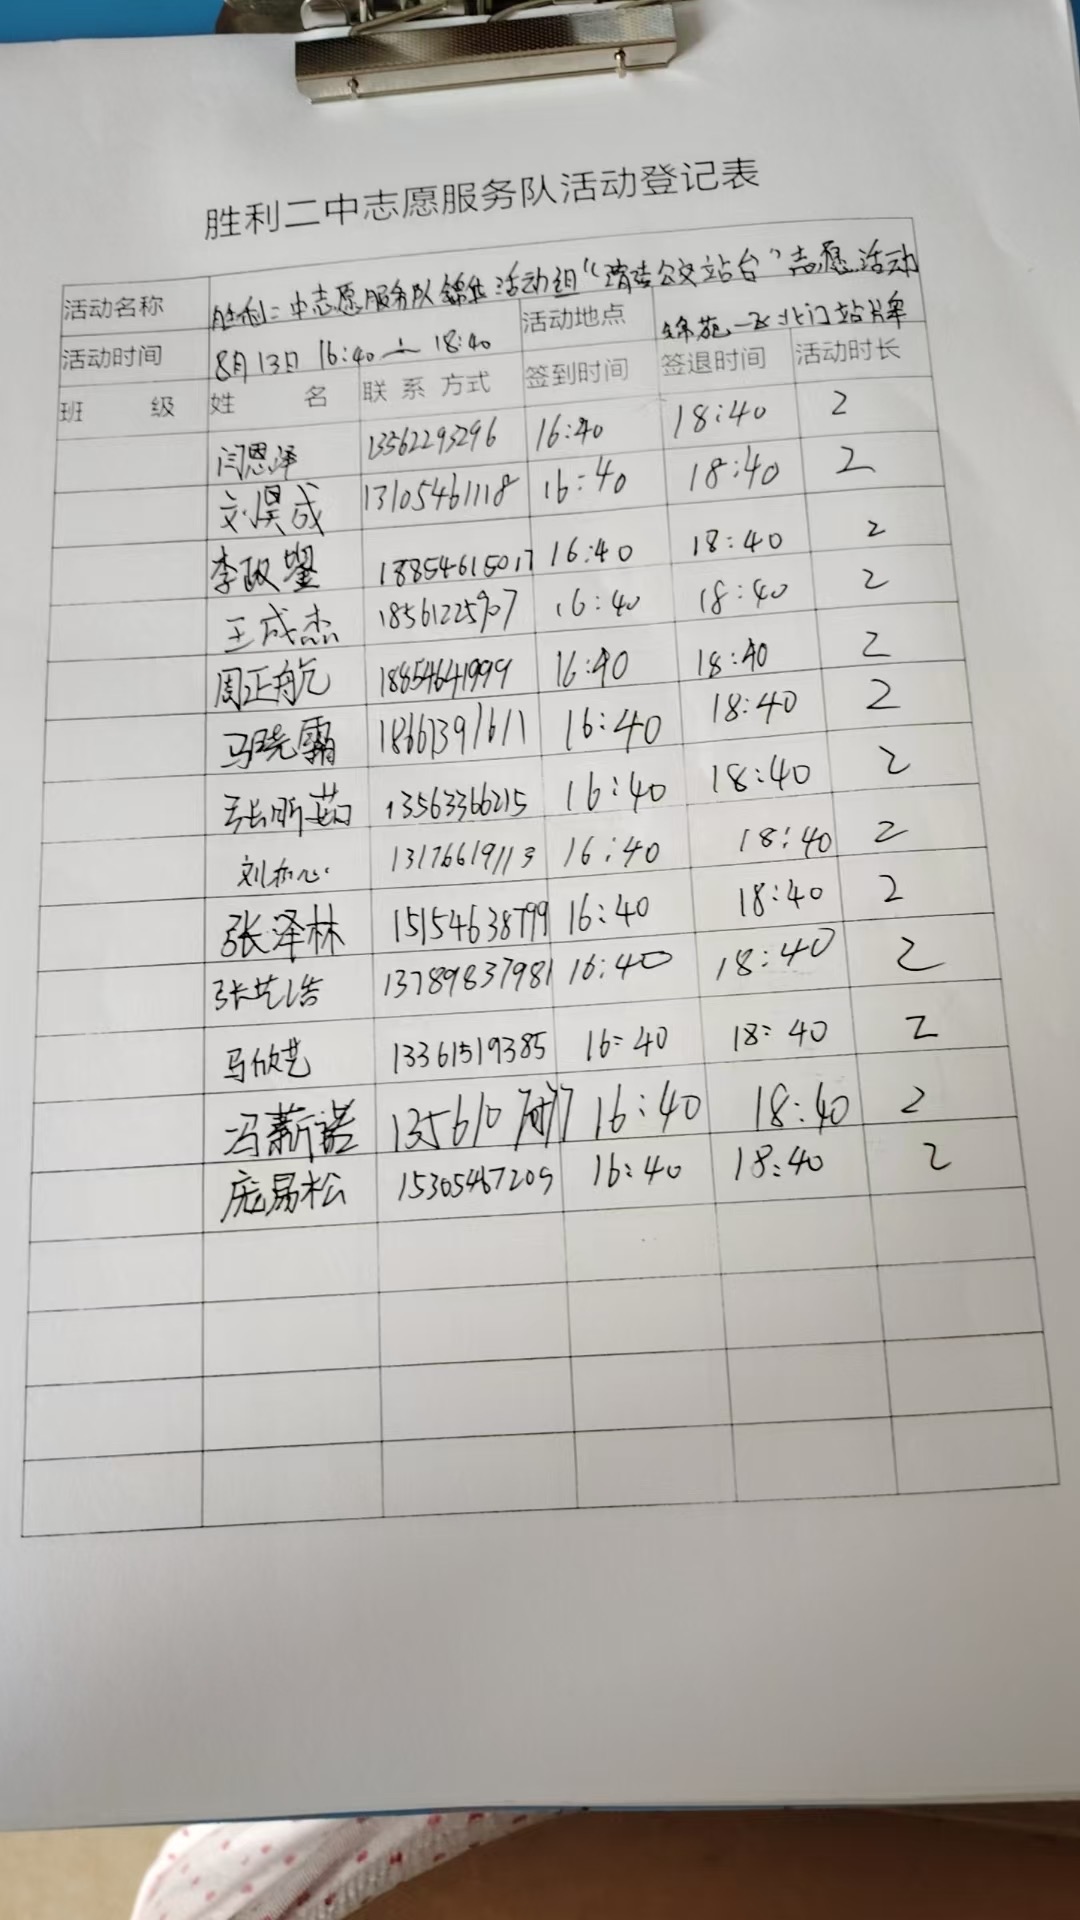 胜利二中志愿服务队活动登记表
活动名称 胜利二中志愿服务队锦华活动组“清洁公交站台”志愿活动
活动时间 8月13日 16:40—18:40 活动地点 锦苑一区北门站牌
班 级 姓 名 联 系 方式 签到时间 签退时间 活动时长
闫恩泽 13562293296 16:40 18:40 2
刘昊成 13105461118 16:40 18:40 2
李政 18854615017 16:40 18:40 2
王成杰 18561225907 16:40 18:40 2
周正航 18854641999 16:40 18:40 2
马晓霜 18661391611 16:40 18:40 2
张昕茹 13563366215 16:40 18:40 2
刘 心 13176619113 16:40 18:40 2
张泽林 15154638799 16:40 18:40 2
张艺浩 13789837981 16:40 18:40 2
马欣艺 13361519385 16:40 18:40 2
冯薪诺 135610 16:40 18:40 2
庞易松 15305467209 16:40 18:40 2